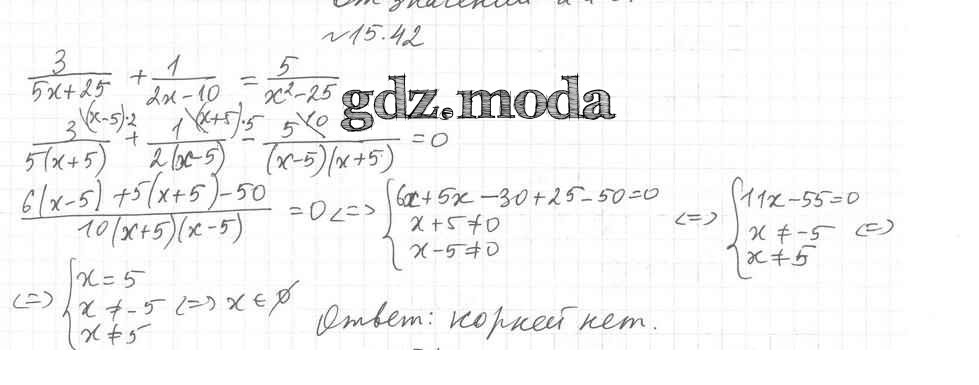 №15.42
3/(5x+25) + 1/(2x-10) = 5/(x²-25)
gdz.moda
3\(x-5)·2/(5(x+5)) + 1\(x+5)·5/(2(x-5)) - 5\10/((x-5)(x+5)) = 0
(6(x-5)+5(x+5)-50)/(10(x+5)(x-5)) = 0 <=> { 6x+5x-30+25-50=0 x+5≠0 x-5≠0 <=> { 11x-55=0 x≠-5 x≠5 <=>
<=> { x=5 x≠-5 x≠5 <=> x∈∅
Ответ: корней нет.